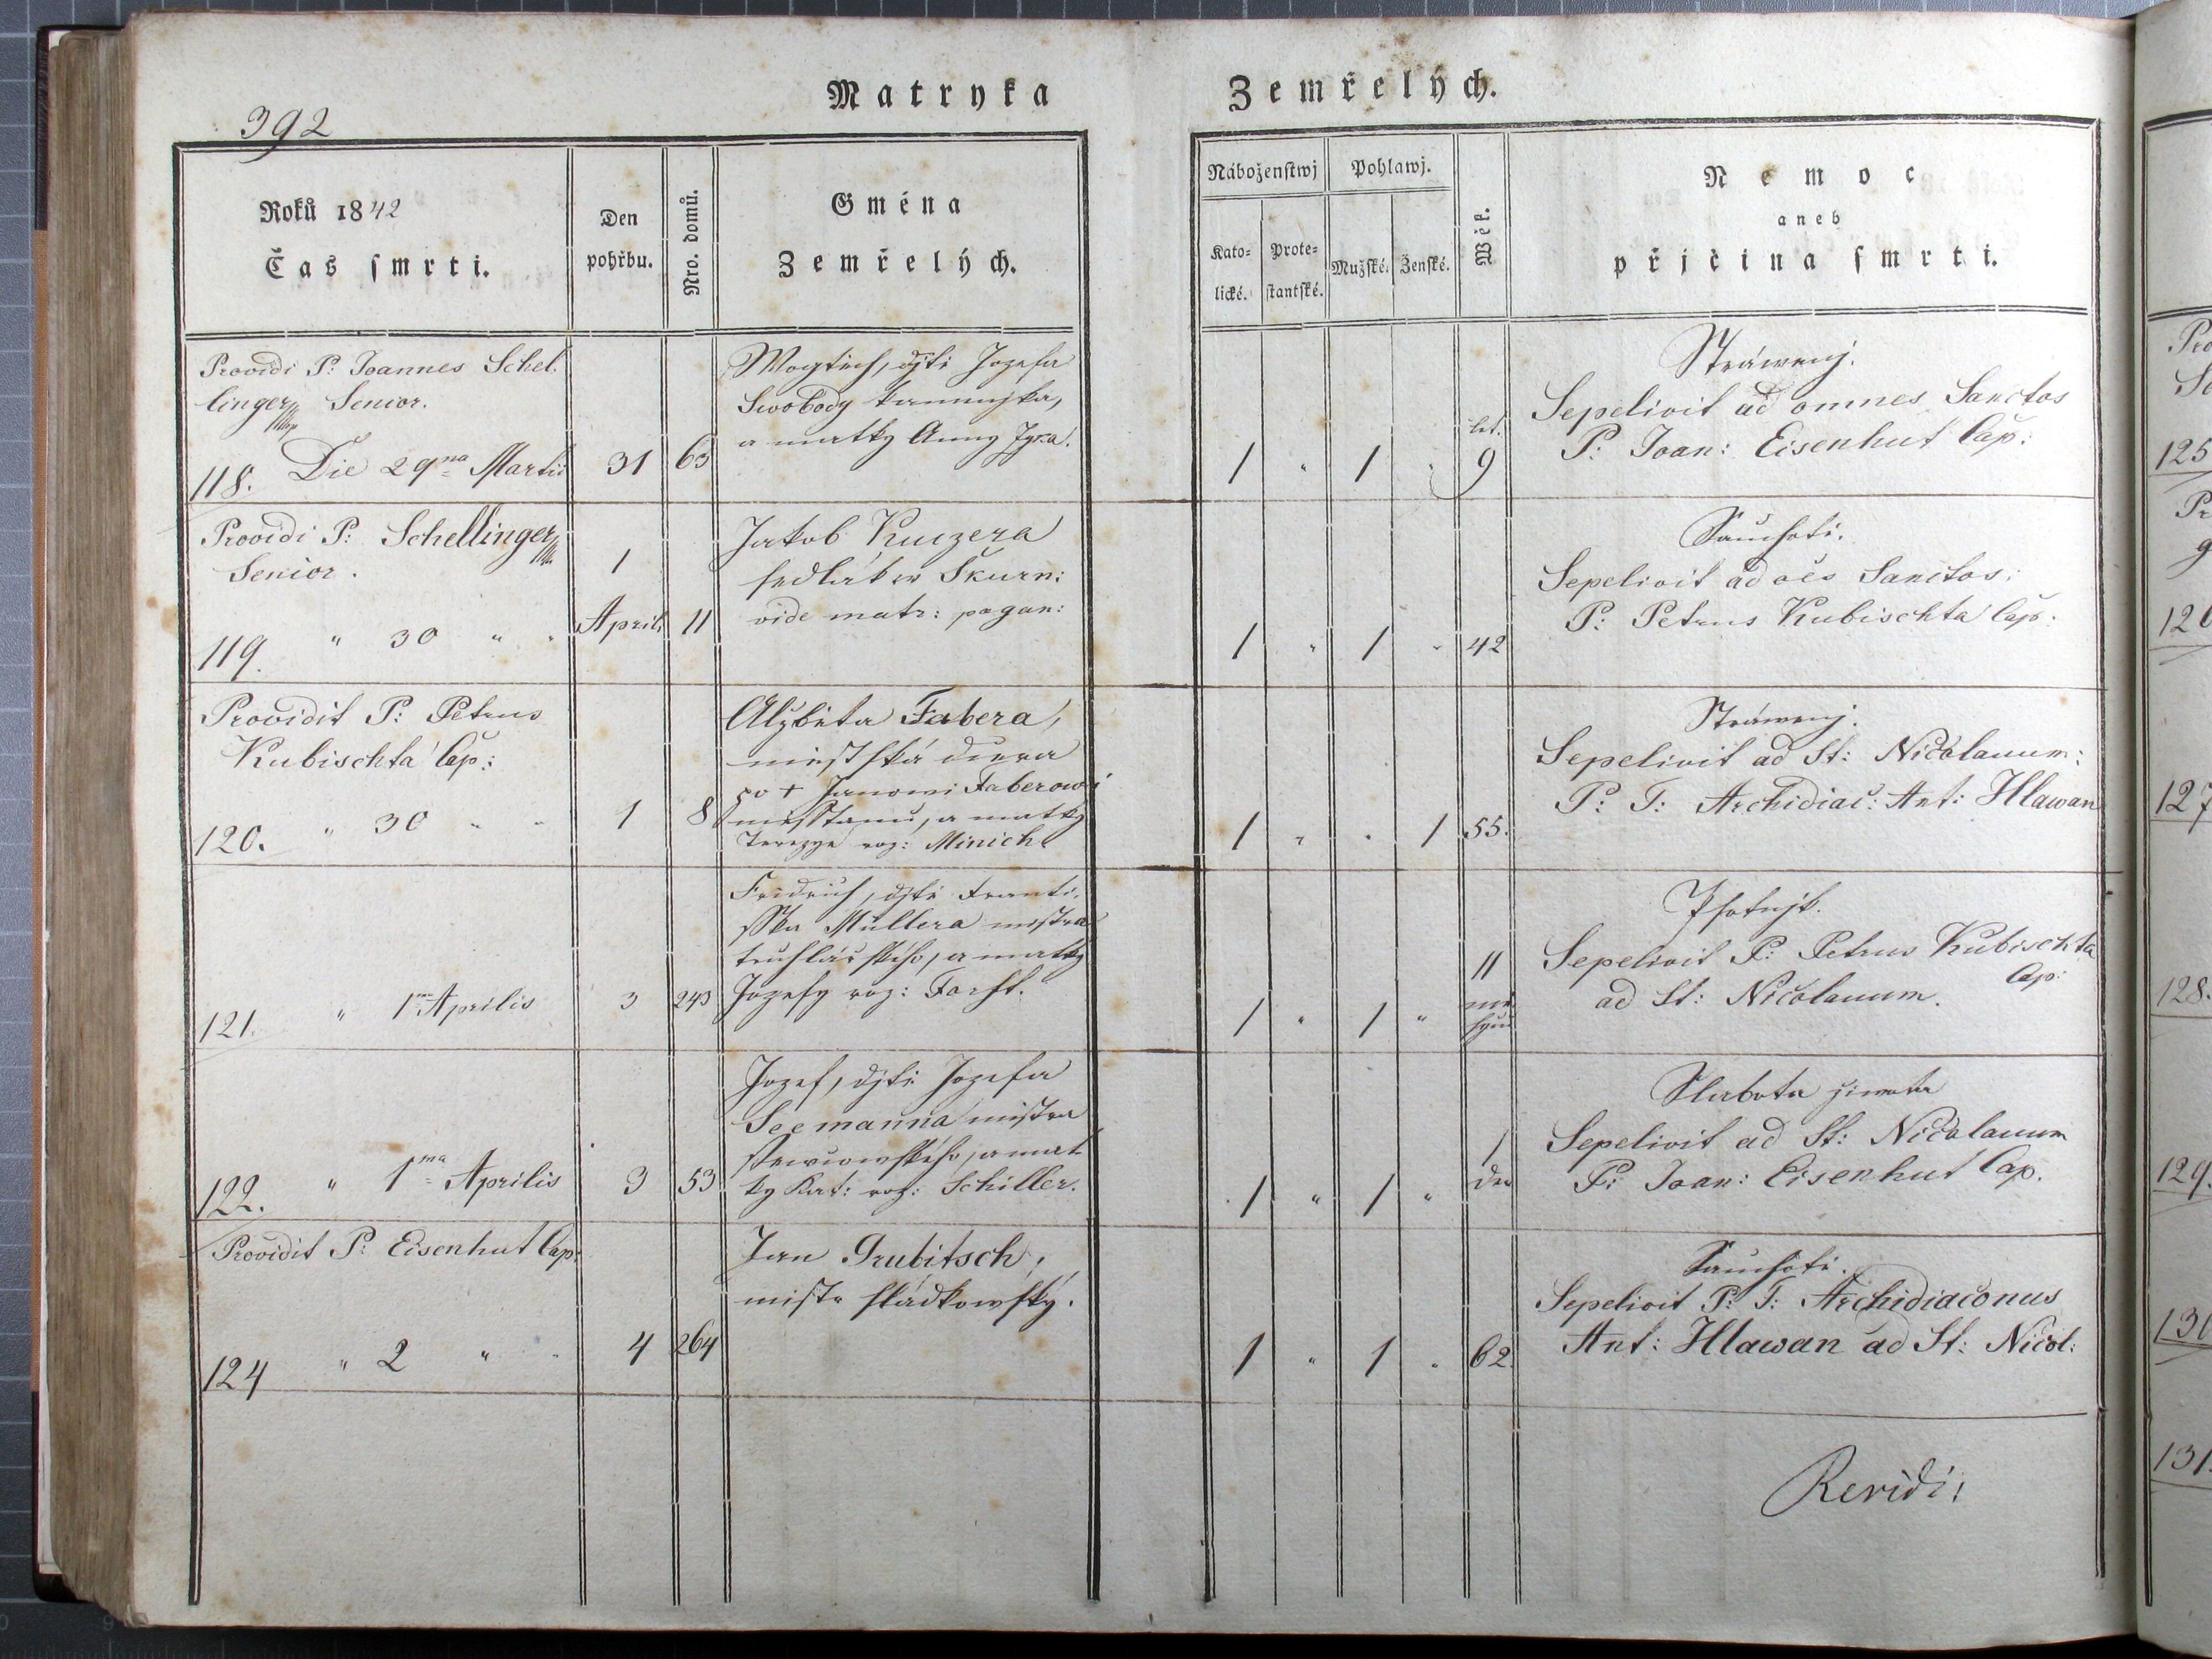 392
Matryka Zemřelých.
Roků 1842
Čas smrti.
Den
pohřbu.
Nro. domů.
Gména
Zemřelých.
Náboženstwj
Pohlawj.
Kato-
lické.
Prote-
stantské.
Mužské.
Ženské.
Wěk.
Nemoc
aneb
přjčina smrti.
Providi P: Joannes Schel-
linger Senior.
118. Die 29na Martii
31
63
Wogtěch, djtě Jozefa
Swobody
a matky Anny
1 " 1 "
let.
9
Strawenj.
Sepelivit ad omnes Sanctos
P: Joan: Eisenhut Cap:
Providi P: Schellinger
Senior.
119. " 30 " "
1
Aprili
11
Jakob Kuczera
sedlák w Skurn:
vide matr: pagan:
1 " 1 "
42
Sauchotě.
Sepelivit ad oēs Sanctos:
P: Petrus Kubischta Cap:
Providit P: Petrus
Kubischta Cap:
120. " 30 " "
1
8
Alžběta Fabera,
městská dcera
po + Janowi Faberowi
měsstanu, a matky
Terezye roz: Minich
1 " " 1
55.
Strawenj.
Sepelivit ad St: Nicolaum:
P: T: Archidiac: Ant: Hlawan
121. " 1ma Aprilis
3
243
Fridrich, djtě Franti-
sska Müllera mistra
truhlářského, a matky
Jozefy roz: Forst.
1 " 1 "
11
mě
sycu
Psotnjk.
Sepelivit P: Petrus Kubischta
Cap:
ad St: Nicolaum.
122. " 1ma Aprilis
3
53
Jozef, djtě Jozefa
Seemanna mistra
ssewcowského, a mat
ky Kat: roz: Schiller.
1 " 1 "
1
den
Slabota žiwota
Sepelivit ad St: Nicolaum
P: Joan: Eisenhut Cap.
Providit P: Eisenhut Cap:
124 " 2 " "
4
264
Jan Grubitsch,
mistr
1 " 1 "
62.
Sauchotě.
Sepelivit P: T: Archidiaconus
Ant: Hlawan ad St: Nicol:
Revidi:
125
126
127
128.
129.
130
131.